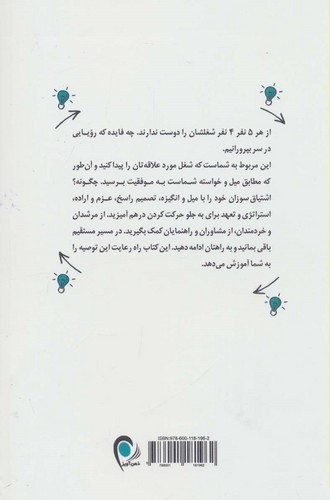 از هر ۵ نفر ۴ نفر شغلشان را دوست ندارند. چه فایده که رؤیایی
در سر بپرورانیم.
این مربوط به شماست که شغل مورد علاقه‌تان را پیدا کنید و آن‌طور
که مطابق میل و خواسته شماست به موفقیت برسید. چگونه؟
اشتیاق سوزان خود را با میل و انگیزه، تصمیم راسخ، عزم و اراده،
استراتژی و تعهد برای به جلو حرکت کردن درهم آمیزید. از مرشدان
و خردمندان، از مشاوران و راهنمایان کمک بگیرید. در مسیر مستقیم
باقی بمانید و به راهتان ادامه دهید. این کتاب راه رعایت این توصیه را
به شما آموزش می‌دهد.
ISBN:978-600-118-196-2
ذهن‌آویز